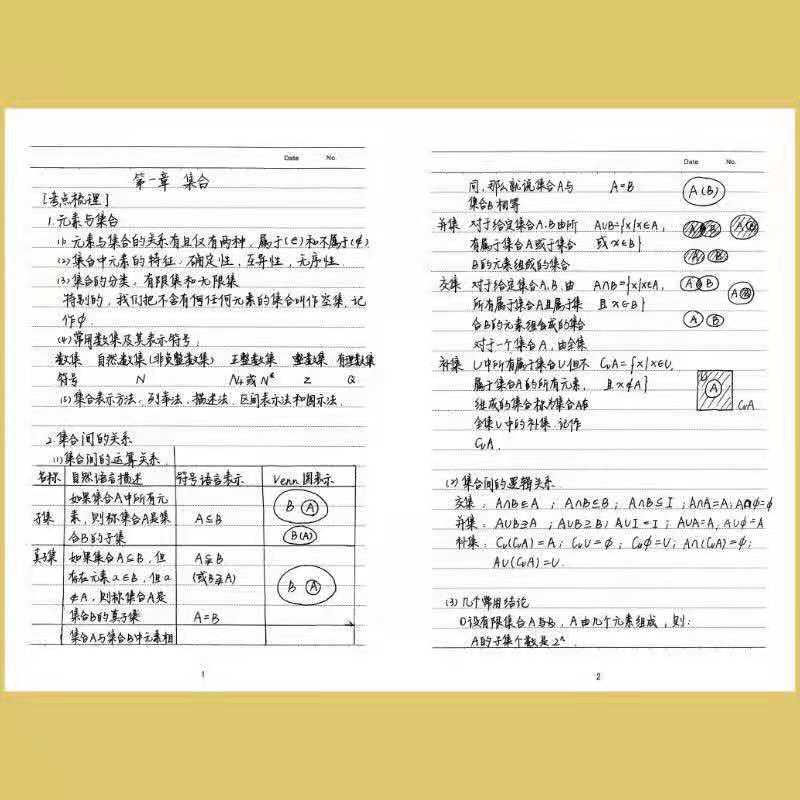 Date No.
第一章 集合
[考点梳理]
1.元素与集合
(1) 元素与集合的关系有且仅有两种,属于(∈)和不属于(∉)
(2)集合中元素的特征:确定性,互异性,无序性.
(3)集合的分类:有限集和无限集
特别的,我们把不含有何任何元素的集合叫作空集,记
作∅.
(4)常用数集及其表示符号:
数集 自然数集(非负整数集) 正整数集 整数集 有理数集
符号 N N₊或N* Z Q
(5)集合表示方法:列举法,描述法,区间表示法和图示法.
2.集合间的关系
(1)集合间的运算关系.
名称 自然语言描述 符号语言表示 Venn图表示
如果集合A中所有元
子集 素,则称集合A是集 A⊆B B A
合B的子集 B(A)
真子集 如果集合A⊆B,但 A⫋B
存在元素a∈B,但a (或B⫌A) B A
∉A,则称集合A是
集合B的真子集 A=B
集合A与集合B中元素相
1
Date No.
同,那么就说集合A与 A=B A(B)
集合B相等
并集 对于给定集合A.B由所 A∪B={x|x∈A, A B
有属于集合A或于集合 或x∈B}
B的元素组成的集合 A B
交集 对于给定集合A,B,由 A∩B={x|x∈A, A B
所有属于集合A且属于集 且x∈B}
合B的元素组合成的集合 A B
对于一个集合A,由全集
补集 U中所有属于集合U但不 C∪A={x|x∈U,
属于集合A的所有元素, 且x∉A} U A
组成的集合称为集合A在
全集U中的补集,记作 C∪A
C∪A.
(2)集合间的逻辑关系.
交集:A∩B⊆A ; A∩B⊆B; A∩B⊆I ; A∩A=A; A∩∅=∅
并集:A∪B⊇A ; A∪B⊇B; A∪I=I ; A∪A=A, A∪∅=A
补集:C∪(C∪A)=A; C∪U=∅; C∪∅=U; A∩(C∪A)=∅;
A∪(C∪A)=U.
(3)几个常用结论
①设有限集合A与B,A由几个元素组成,则:
A的子集个数是2ⁿ.
2